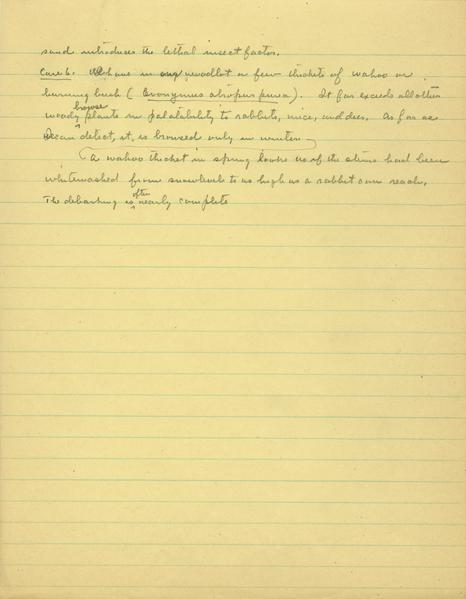 sand introduces the lethal insect factor.
Case 6. We have in our woodlot a few thickets of wahoo or
burning bush (Evonymus atropurpurea). It far exceeds all other
browse
woody plants in palatability to rabbits, mice, and deer. As far as
I can detect, it is browsed only in winter.
A wahoo thicket in spring looks as if the stems had been
whitewashed from snowlevel to as high as a rabbit can reach.
often
The debarking is nearly complete